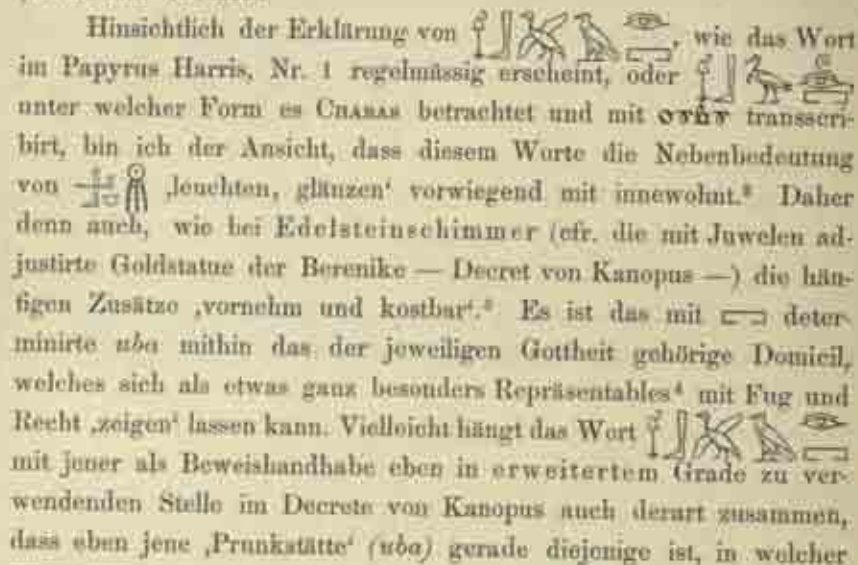 Hinsichtlich der Erklärung von , wie das Wort
im Papyrus Harris, Nr. 1 regelmässig erscheint, oder
unter welcher Form es CHABAS betrachtet und mit transscri-
birt, bin ich der Ansicht, dass diesem Worte die Nebenbedeutung
von ‚leuchten, glänzen‘ vorwiegend mit innewohnt.² Daher
denn auch, wie bei Edelsteinschimmer (cfr. die mit Juwelen ad-
justirte Goldstatue der Berenike — Decret von Kanopus —) die häu-
figen Zusätze ‚vornehm und kostbar‘.³ Es ist das mit deter-
minirte uba mithin das der jeweiligen Gottheit gehörige Domicil,
welches sich als etwas ganz besonders Repräsentables⁴ mit Fug und
Recht ‚zeigen‘ lassen kann. Vielleicht hängt das Wort
mit jener als Beweishandhabe eben in erweitertem Grade zu ver-
wendenden Stelle im Decrete von Kanopus auch derart zusammen,
dass eben jene ‚Prunkstätte‘ (uba) gerade diejenige ist, in welcher